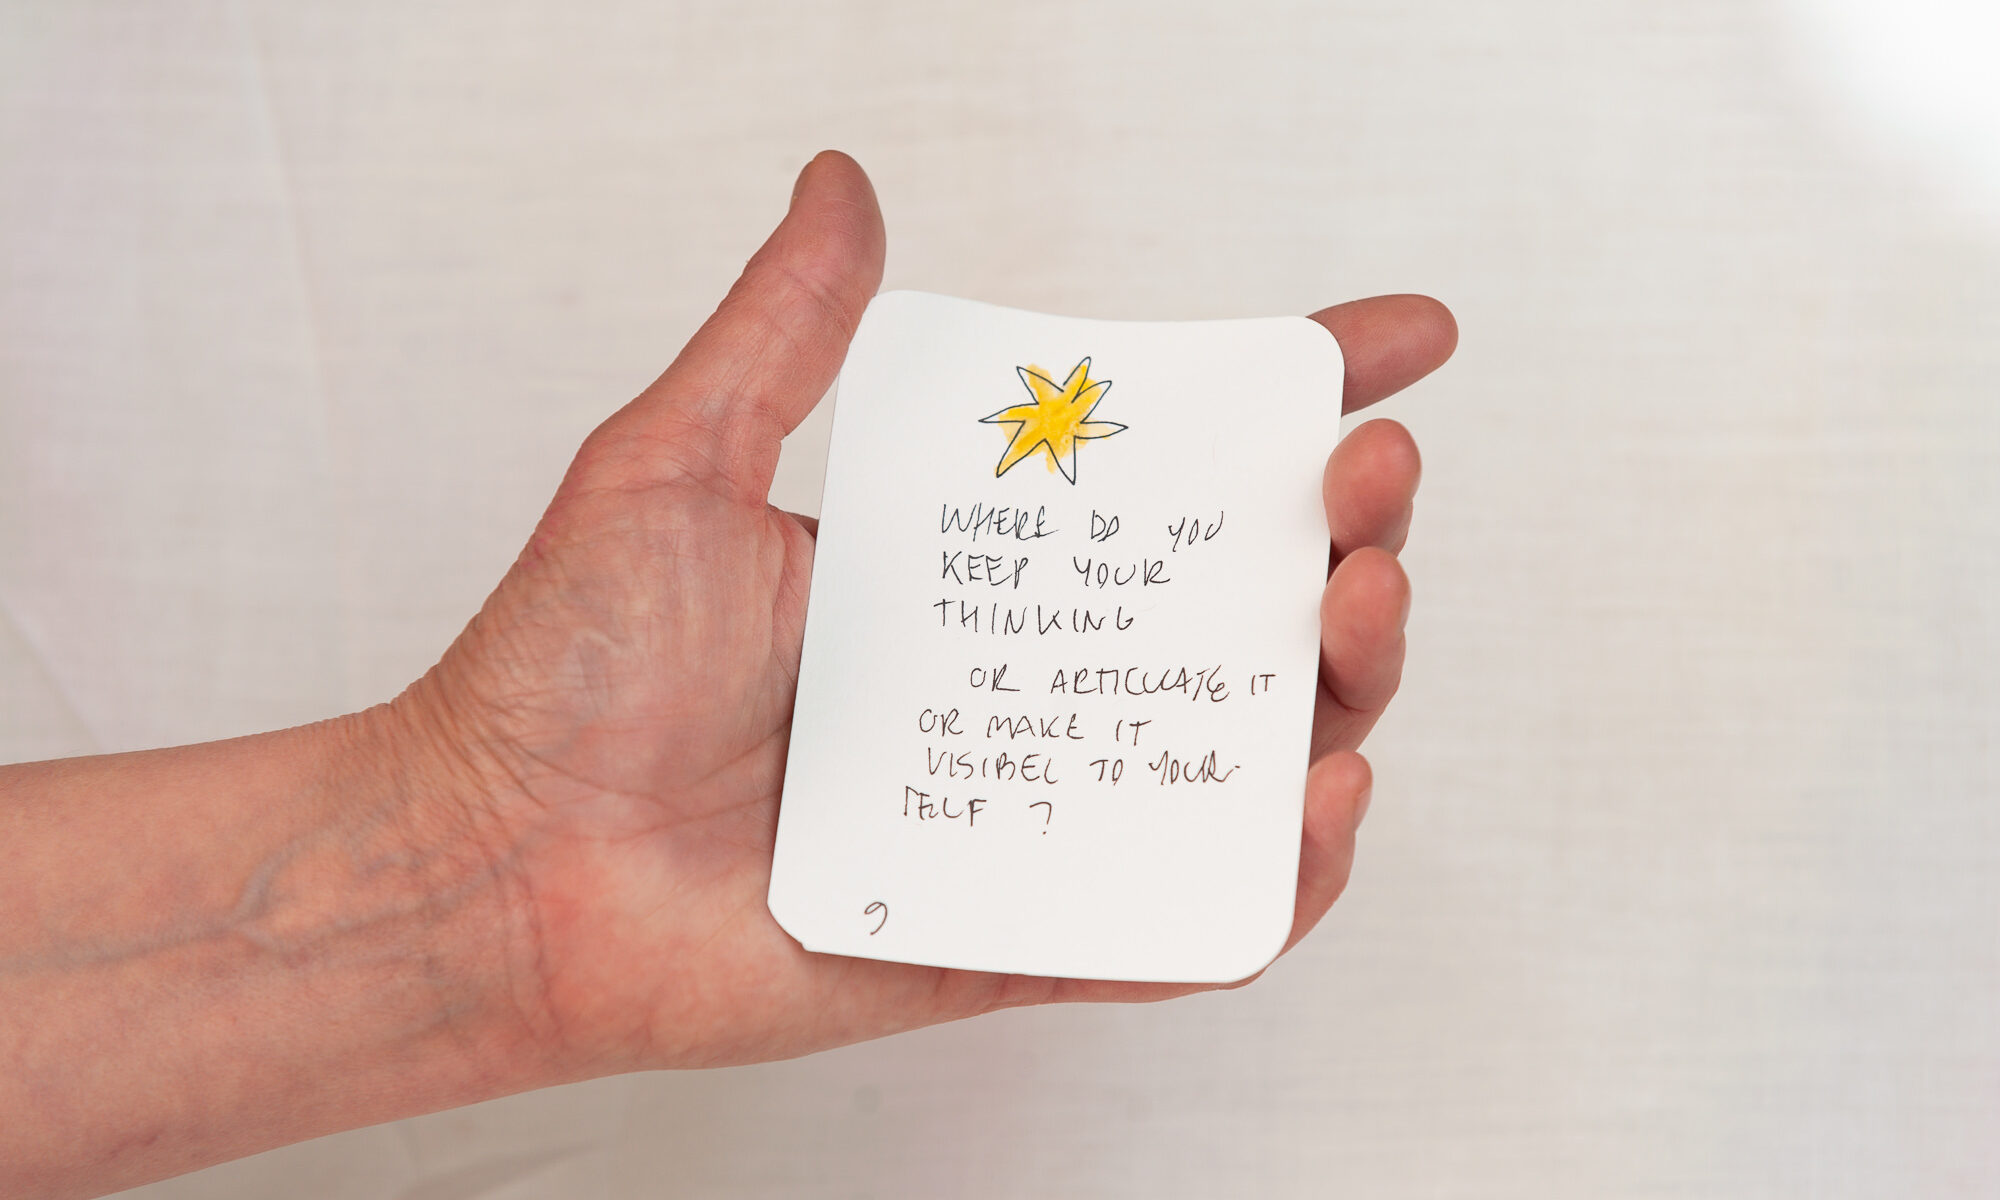 WHERE DO YOU
KEEP YOUR
THINKING
OR ARTICULATE IT
OR MAKE IT
VISIBEL TO YOUR-
SELF ?
9